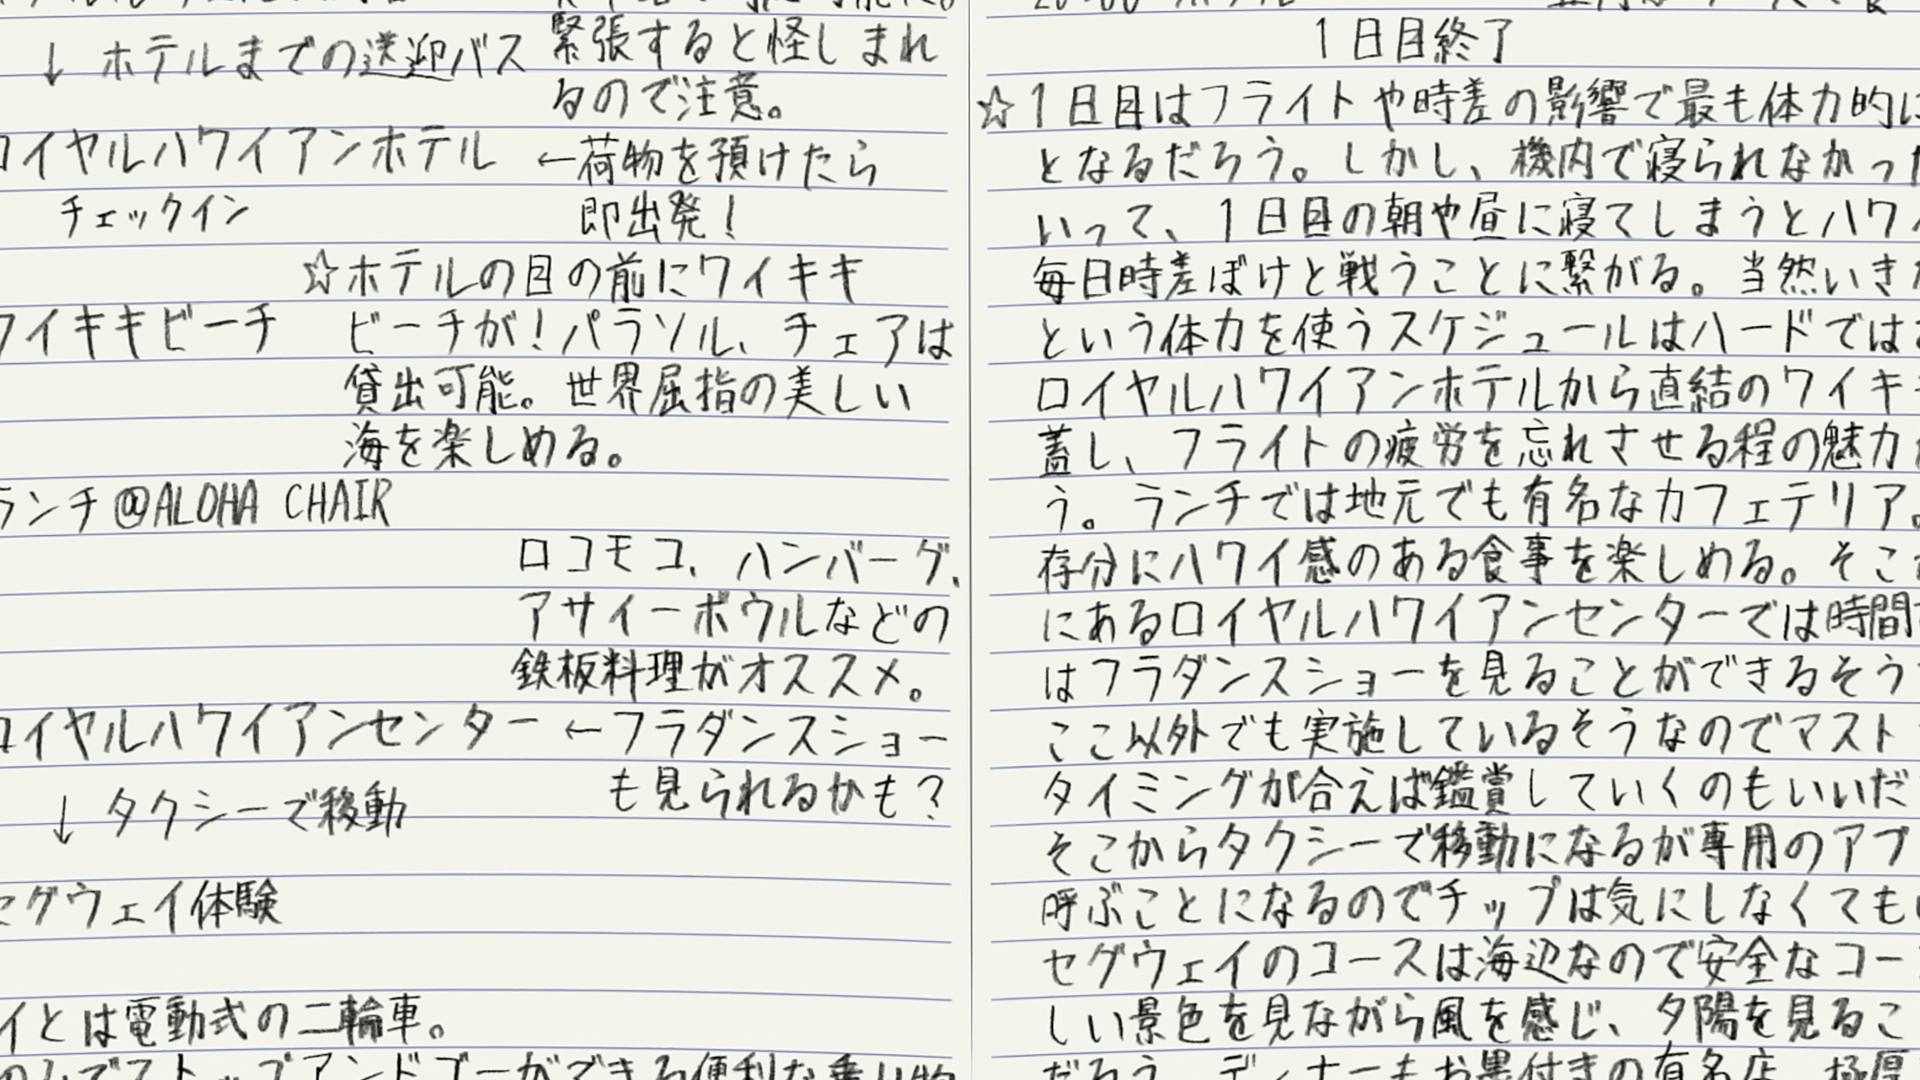 ↓ ホテルまでの送迎バス
緊張すると怪しまれ
るので注意。
ロイヤルハワイアンホテル
←荷物を預けたら
即出発！
チェックイン
☆ホテルの目の前にワイキキ
ワイキキビーチ
ビーチが！パラソル、チェアは
貸出可能。世界屈指の美しい
海を楽しめる。
ランチ@ALOHA CHAIR
ロコモコ、ハンバーグ、
アサイーボウルなどの
鉄板料理がオススメ。
ロイヤルハワイアンセンター
←フラダンスショー
も見られるかも？
↓ タクシーで移動
セグウェイ体験
イとは電動式の二輪車。
のみでストップアンドゴーができる便利な乗り物
1日目終了
☆1日目はフライトや時差の影響で最も体力的に
となるだろう。しかし、機内で寝られなかった
いって、1日目の朝や昼に寝てしまうとハワイ
毎日時差ぼけと戦うことに繋がる。当然いきな
という体力を使うスケジュールはハードではあ
ロイヤルハワイアンホテルから直結のワイキキ
蓋し、フライトの疲労を忘れさせる程の魅力
う。ランチでは地元でも有名なカフェテリア。
存分にハワイ感のある食事を楽しめる。そこ
にあるロイヤルハワイアンセンターでは時間
はフラダンスショーを見ることができるそう
ここ以外でも実施しているそうなのでマスト
タイミングが合えば鑑賞していくのもいいだ
そこからタクシーで移動になるが専用のアプ
呼ぶことになるのでチップは気にしなくても
セグウェイのコースは海辺なので安全なコー
しい景色を見ながら風を感じ、夕陽を見るこ
だろう。ディナーもお墨付きの有名店。極厚